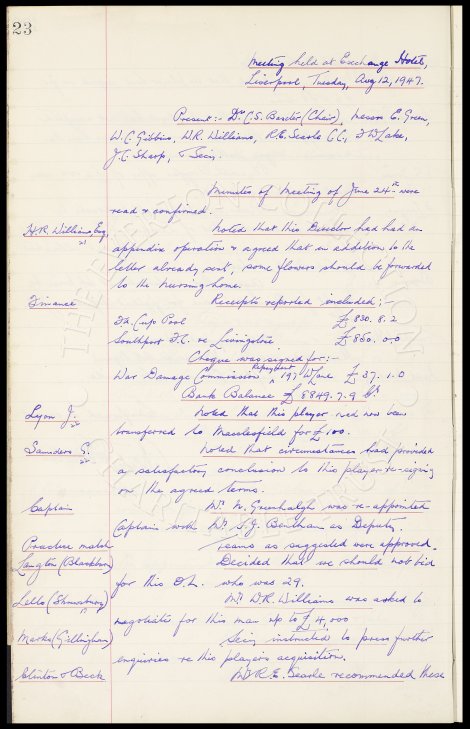 23
Meeting held at Exchange Hotel,
Liverpool, Tuesday, Aug 12, 1947.
Present:- Dr. C.S. Baxter (Chair), Messrs E. Green,
W.C. Gibbins, W.R. Williams, R.E. Searle C.C., F.W. Lake,
J.C. Sharp, & Secy.
Minutes of Meeting of June 24th were
read & confirmed.
H.R. Williams, Esq. Noted that this Director had had an
appendix operation & agreed that in addition to the
letter already sent, some flowers should be forwarded
to the nursing home.
Finance Receipts reported included:-
F.A. Cup Pool £830. 8. 2
Southport F.C. re Livingstone £850. 0.0
Cheque was signed for:-
War Damage Commission Repayment 197 Lane £37. 1. 0
Bank Balance £8849. 7. 9 Cr.
Lyon J. Noted that this player had now been
transferred to Macclesfield for £100.
Saunders G. Noted that circumstances had provided
a satisfactory conclusion to this player re-signing
on the agreed terms.
Captain Mr. N. Greenhalgh was re-appointed
Captain with Mr. S.J. Bentham as Deputy.
Practice match Teams as suggested were approved.
Langton (Blackburn) Decided that we should not bid
for this O.L. who was 29.
Lello (Shrewsbury) Mr. W.R. Williams was asked to
negotiate for this man up to £4,000
Marks (Gillingham) Secy. instructed to press further
enquiries re this players acquisition.
Clinton & Beck Mr. R.E. Searle recommended these